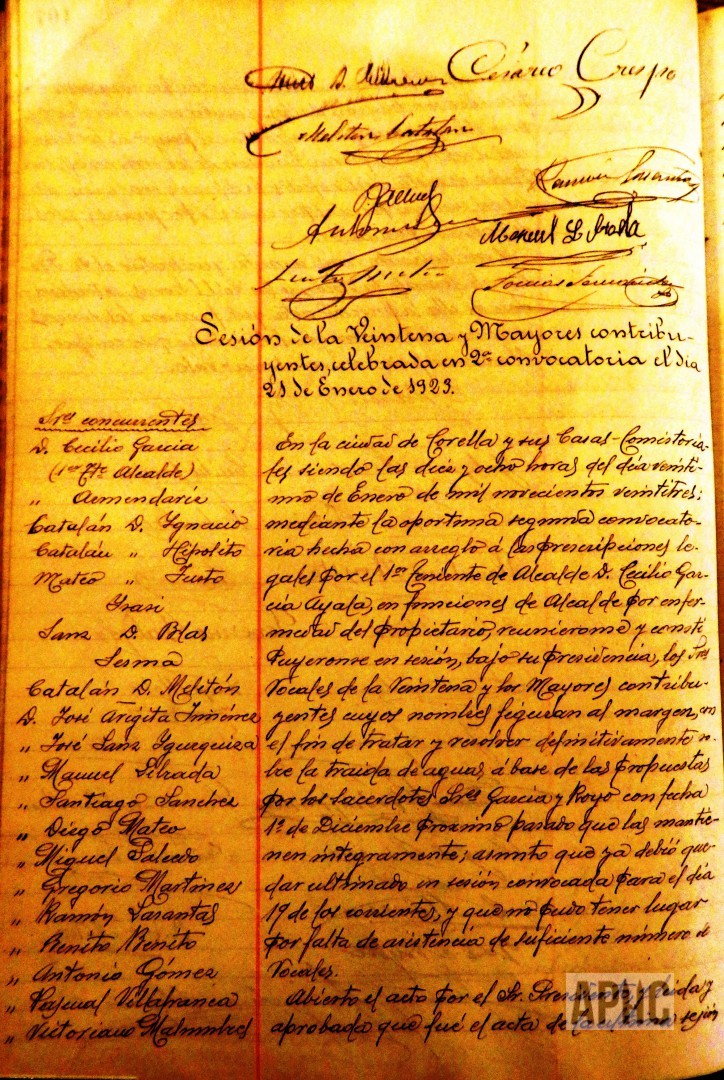 Cesáreo Crespo
Melitón Catalán
Ramón
Antonio
Manuel Librada
Justo Mateo
Tomás
Sesión de la Veintena y Mayores contribu-
yentes, celebrada en 2ª convocatoria el día
21 de Enero de 1923.
Sres concurrentes
D. Cecilio Garcia
(1er Tte Alcalde)
" Armendariz
Catalán D. Ygnacio
Catalán " Hipólito
Mateo " Justo
Ysasi
Sanz D. Blas
Sesma
Catalán D. Melitón
D. José Arigita Jiménez
" José Sanz Yguerquiza
" Manuel Librada
" Santiago Sanchez
" Diego Mateo
" Miguel Salcedo
" Gregorio Martinez
" Ramón Lasantas
" Benito Benito
" Antonio Gómez
" Pascual Villafranca
" Victoriano Malumbres
En la ciudad de Corella y sus Casas-Consistoria-
les siendo las diez y ocho horas del día veinti-
uno de Enero de mil novecientos veintitres;
mediante la oportuna segunda convocato-
ria hecha con arreglo á las prescripciones le-
gales por el 1er Teniente de Alcalde D. Cecilio Gar-
cía Ayala, en funciones de Alcalde por enfer-
medad del propietario, reunieronse y consti
tuyeronse en sesión, bajo su presidencia, los Sres
Vocales de la Veintena y los Mayores contribu-
yentes cuyos nombres figuran al margen, con
el fin de tratar y resolver definitivamente so-
bre la traida de aguas á base de las propuestas
por los sacerdotes Sres Garcia y Royo con fecha
1º de Diciembre proximo pasado que las mantie-
nen integramente; asunto que ya debió que-
dar ultimado en sesión convocada para el día
19 de los corrientes, y que no pudo tener lugar
por falta de asistencia de suficiente número de
Vocales.
Abierto el acto por el Sr. Presidente, y leida y
aprobada que fué el acta de la ultima sesión
APHC